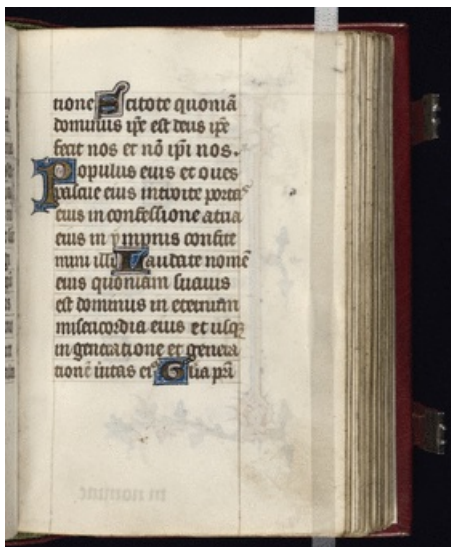 tione Scitote quoniā
dominus ip̄e est deus ip̄e
fecit nos et nō ip̄i nos.
Populus eius et oues
pascue eius introite portas
eius in confessione atria
eius in ympnis confite
mini illi Laudate nomē
eius quoniam suauis
est dominus in eternum
misericordia eius et usqꝫ
in generatione et genera
tionē ūitas eiꝰ Glīa pr̄i